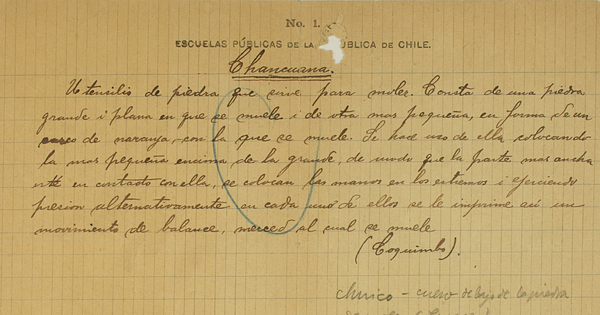 No. 1.
ESCUELAS PÚBLICAS DE LA PUBLICA DE CHILE.
Chancuana.
Utensilio de piedra que sirve para moler. Consta de una piedra
grande i plana en que se muele i de otra mas pequeña, en forma de un
casco de naranja, con la que se muele. Se hace uso de ella colocando
la mas pequeña encima de la grande, de modo que la parte mas ancha
esté en contacto con ella, se colocan las manos en los estremos i ejerciendo
presion alternativamente en cada uno de ellos se le imprime asi un
movimiento de balance, merced al cual se muele
(Coquimbo).
chuico - cuero debajo de la piedra